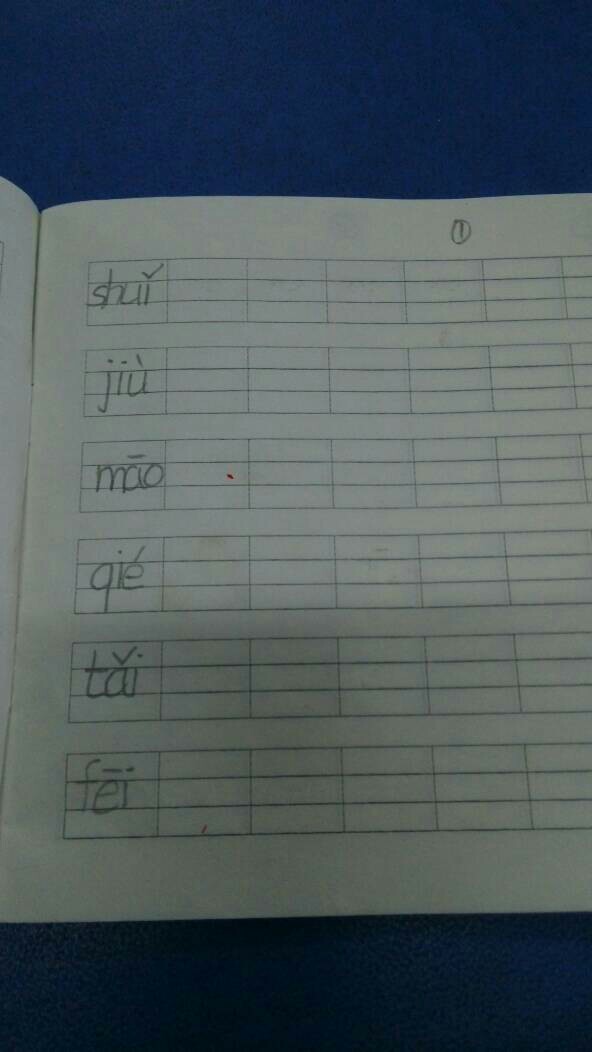 ①
shuǐ
jiù
māo
qié
tǎi
fēi